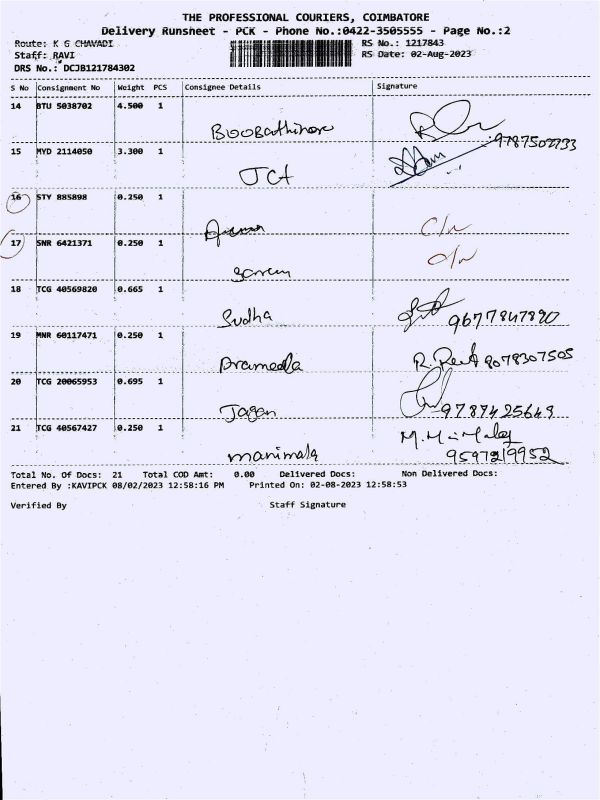 THE PROFESSIONAL COURIERS, COIMBATORE
Delivery Runsheet - PCK - Phone No.:0422-3505555 - Page No.:2
Route: K G CHAVADI
RS No.: 1217843
Staff: RAVI
RS Date: 02-Aug-2023
DRS No.: DCJB121784302
S No Consignment No Weight PCS Consignee Details Signature
14 BTU 5038702 4.500 1
Boobathiraja
9787502733
15 MYD 2114050 3.300 1
JCT
16 STY 885898 0.250 1
C/n
17 SNR 6421371 0.250 1
O/n
18 TCG 40569820 0.665 1
Sudha 9677847890
19 MNR 60117471 0.250 1
Prameela 9078307505
20 TCG 20065953 0.695 1
Jagan 9787425649
21 TCG 40567427 0.250 1
manimala 9597219952
Total No. Of Docs: 21 Total COD Amt: 0.00 Delivered Docs: Non Delivered Docs:
Entered By :KAVIPCK 08/02/2023 12:58:16 PM Printed On: 02-08-2023 12:58:53
Verified By Staff Signature